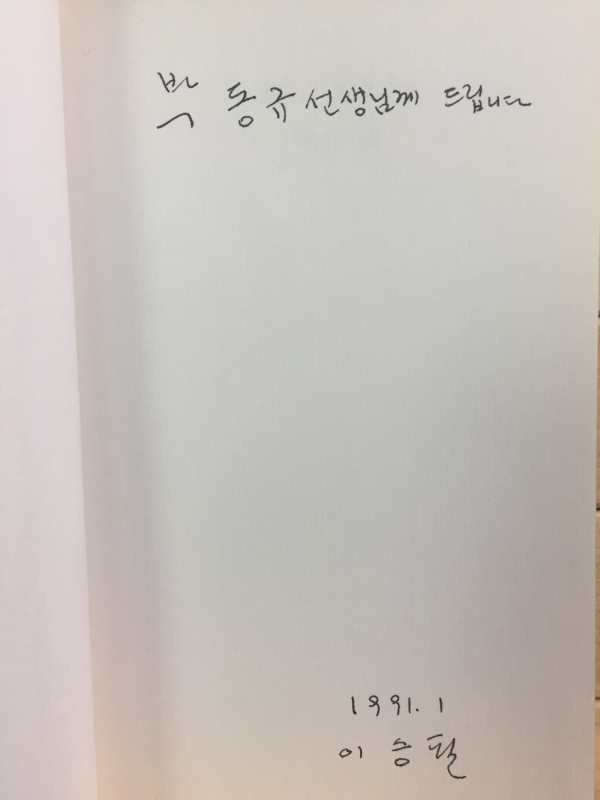 박 동규 선생님께 드립니다
1991. 1
이 승 필